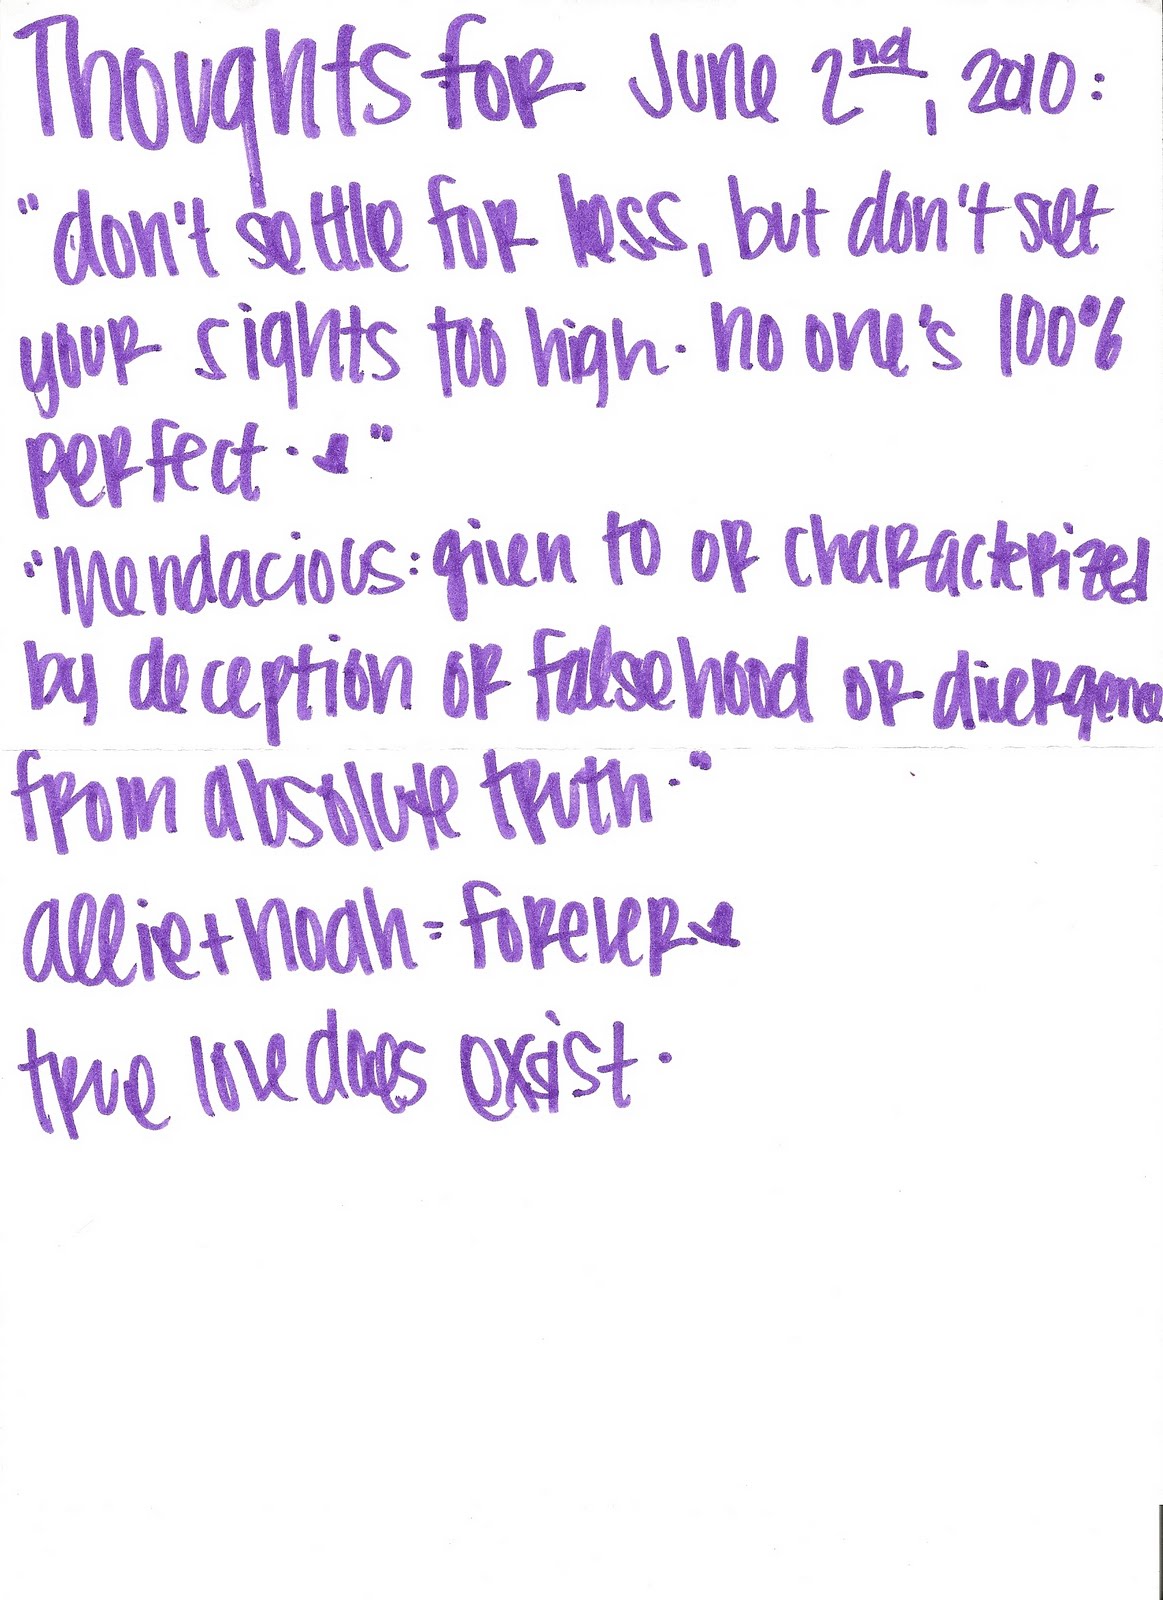 Thoughts for June 2nd, 2010:
"don't settle for less, but don't set
your sights too high. no one's 100%
perfect. ♥"
"Mendacious: given to or characterized
by deception or falsehood or divergence
from absolute truth."
allie + noah = forever ♥
true love does exist.